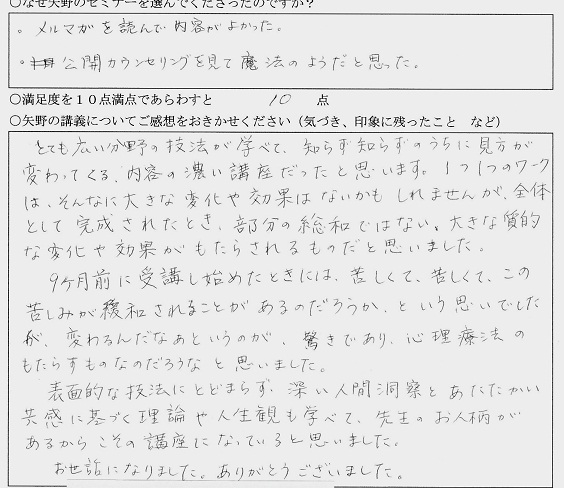 ○なぜ矢野のセミナーを選んでくださったのですか？
。メルマガを読んで内容がよかった。
・公開カウンセリングを見て魔法のようだと思った。
○満足度を１０点満点であらわすと 10 点
○矢野の講義についてご感想をおきかせください（気づき、印象に残ったこと など）
とても広い分野の技法が学べて、知らず知らずのうちに見方が
変わってくる、内容の濃い講座だったと思います。1つ1つのワーク
は、そんなに大きな変化や効果はないかもしれませんが、全体
として完成されたとき、部分の総和ではない、大きな質的
な変化や効果がもたらされるものだと思いました。
9ヶ月前に受講し始めたときには、苦しくて、苦しくて、この
苦しみが緩和されることがあるのだろうか、という思いでした
が、変わるんだなぁというのが、驚きであり、心理療法の
もたらすものなのだろうなと思いました。
表面的な技法にとどまらず、深い人間洞察とあたたかい
共感に基づく理論や人生観も学べて、先生のお人柄が
あるからこその講座になっていると思いました。
お世話になりました。ありがとうございました。